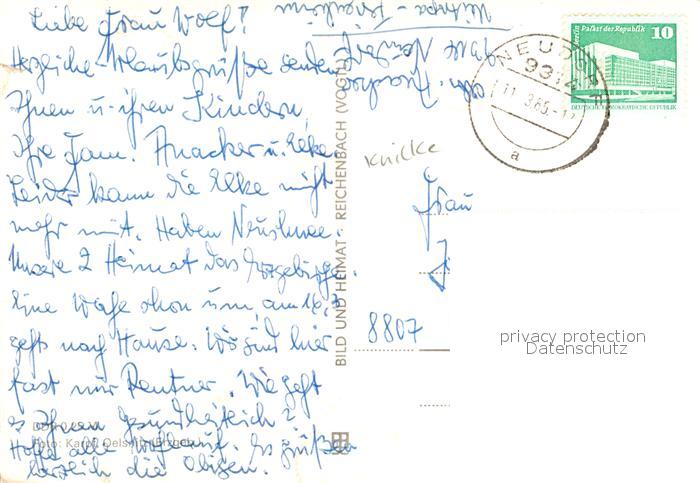 Liebe Frau Wolf!
Herzliche Urlaubsgrüße senden
Ihnen u. ihren Kindern,
Ihre Fam. Anacker u. Elke.
Leider kann die Elke nicht
mehr mit. Haben Neuschnee.
Unsere 2 Heimat das Erzgebirge.
Eine Woche schon um, am 16.3
geht nach Hause. Wir sind hier
fast nur Rentner. Wie geht
es Ihnen gesundheitlich?
Hoffe alle wohlauf. Es grüßen
herzlich die Obigen.
Abs. Anacker
Neudorf
Mitropa - Ferienheim
BILD UND HEIMAT REICHENBACH (VOGTL)
NEUDORF
9314
11.3.85
a
Berlin, Palast der Republik
10
DEUTSCHE DEMOKRATISCHE REPUBLIK
Knicke
Frau
8807
privacy protection
Datenschutz
Foto: Karl Oelsnitz (Erzgeb.)